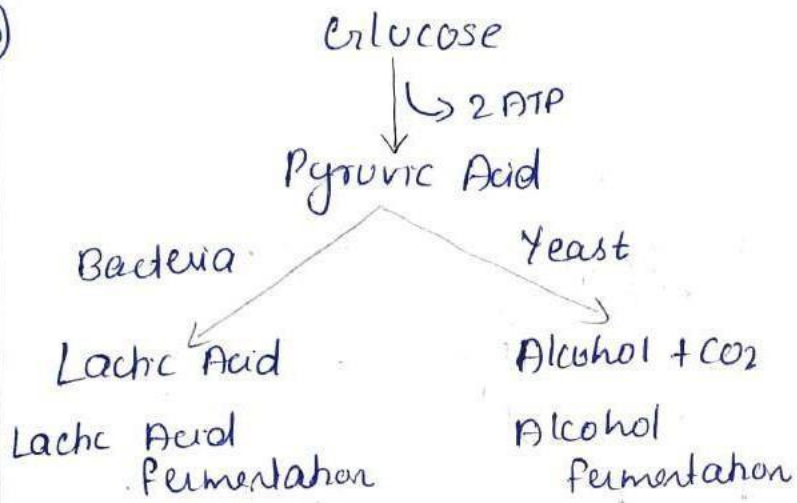 Glucose
2 ATP
Pyruvic Acid
Bacteria
Yeast
Lactic Acid
Alcohol + CO2
Lactic Acid
fermentation
Alcohol
fermentation